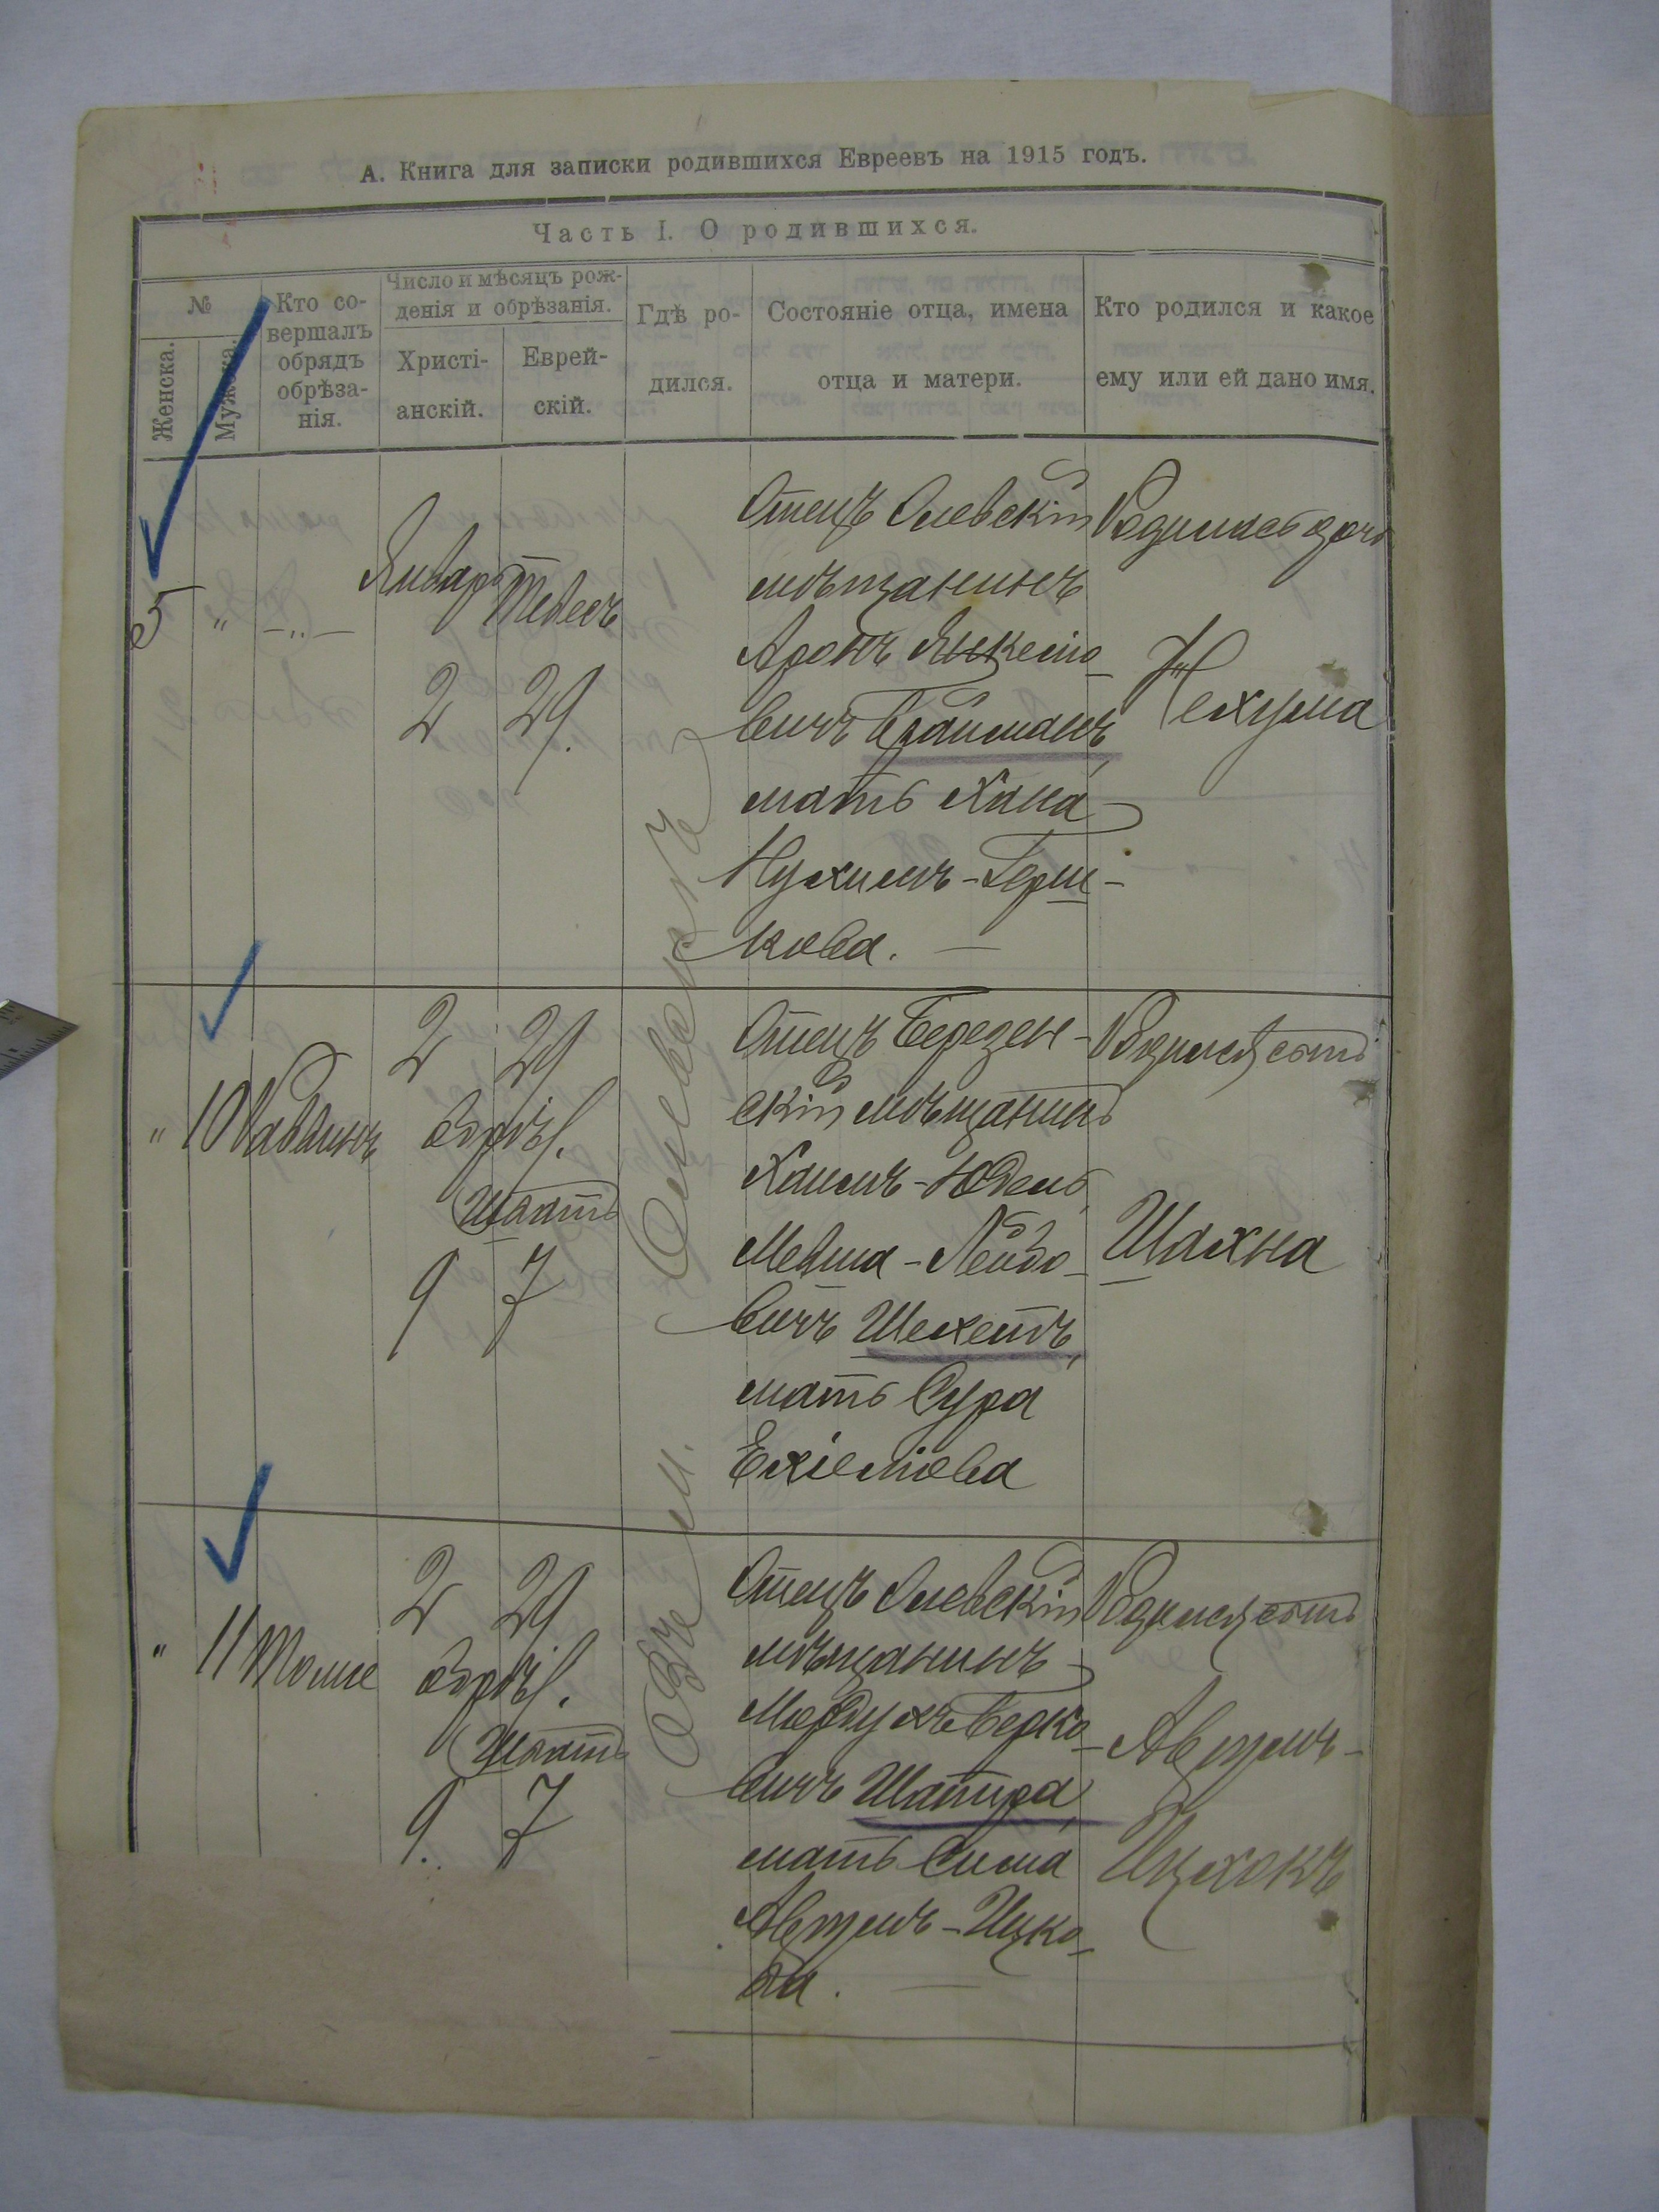 А. Книга для записки родившихся Евреевъ на 1915 годъ.
Часть I. О родившихся.
№
Женска.
Мужеска.
Кто со-
вершалъ
обрядъ
обрѣза-
нія.
Число и мѣсяцъ рож-
денія и обрѣзанія.
Христі-
анскій.
Еврей-
скій.
Гдѣ ро-
дился.
Состояніе отца, имена
отца и матери.
Кто родился и какое
ему или ей дано имя.
5 " — " —
Январь Тевесъ
2 29.
Въ м. Олевскѣ
Отецъ Олевскій
мѣщанинъ
Аронъ Янкеліо-
вичъ
мать Хана
Нухимъ-Герш-
кова. —
Родилась дочь
Нехума
" 10 Раввинъ
2 29
обрѣз.
Шватъ
9 7
Отецъ Березен-
скій мѣщанинъ
Хаимъ-Юдель
Мевша-Лейбо-
вичъ Шехетъ,
мать Сура
Ехіеліова
Родился сынъ
Шахна
" 11 Тоже
2 29
обрѣз.
Шватъ
9. 7
Отецъ Олевскій
мѣщанинъ
Мордухъ Берко-
вичъ Шапира,
мать Сима
Аврумъ-Ицко-
ва. —
Родился сынъ
Аврумъ-
Ицхокъ